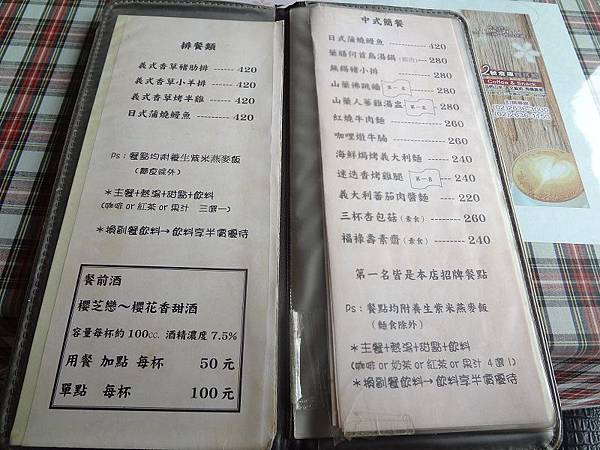 排餐類
義式香草豬肋排 ----- 420
義式香草小羊排 ----- 420
義式香草烤半雞 ----- 420
日式蒲燒鰻魚 ----- 420
Ps：餐點均附養生紫米燕麥飯
＊主餐+熱湯+甜點+飲料
(咖啡 or 紅茶 or 果汁 三選一)
＊換副餐飲料→飲料享半價優待
餐前酒
櫻芝戀～櫻花香甜酒
容量每杯約 100cc. 酒精濃度 7.5%
用餐 加點 每杯 50 元
單點 每杯 100 元
中式簡餐
日式蒲燒鰻魚 ----- 420
藥膳何首烏湯鍋 (雞肉) --- 280
無錫豬小排 ----- 280
山藥佛跳牆 第一名 ----- 280
山藥人蔘雞湯盅 第一名 --- 280
紅燒牛肉麵 ----- 260
咖哩燉牛腩 ----- 260
海鮮焗烤義大利麵 ----- 240
迷迭香烤雞腿 第一名 ----- 240
義大利蕃茄肉醬麵 ----- 220
三杯杏包菇 (素食) ----- 260
福祿壽素齋 (素食) ----- 240
第一名皆是本店招牌餐點
Ps：餐點均附養生紫米燕麥飯
(麵食除外)
＊主餐+熱湯+甜點+飲料
(咖啡 or 奶茶 or 紅茶 or 果汁 4 選 1)
＊換副餐飲料→飲料享半價優待
2號倉庫
Coffee & Snack